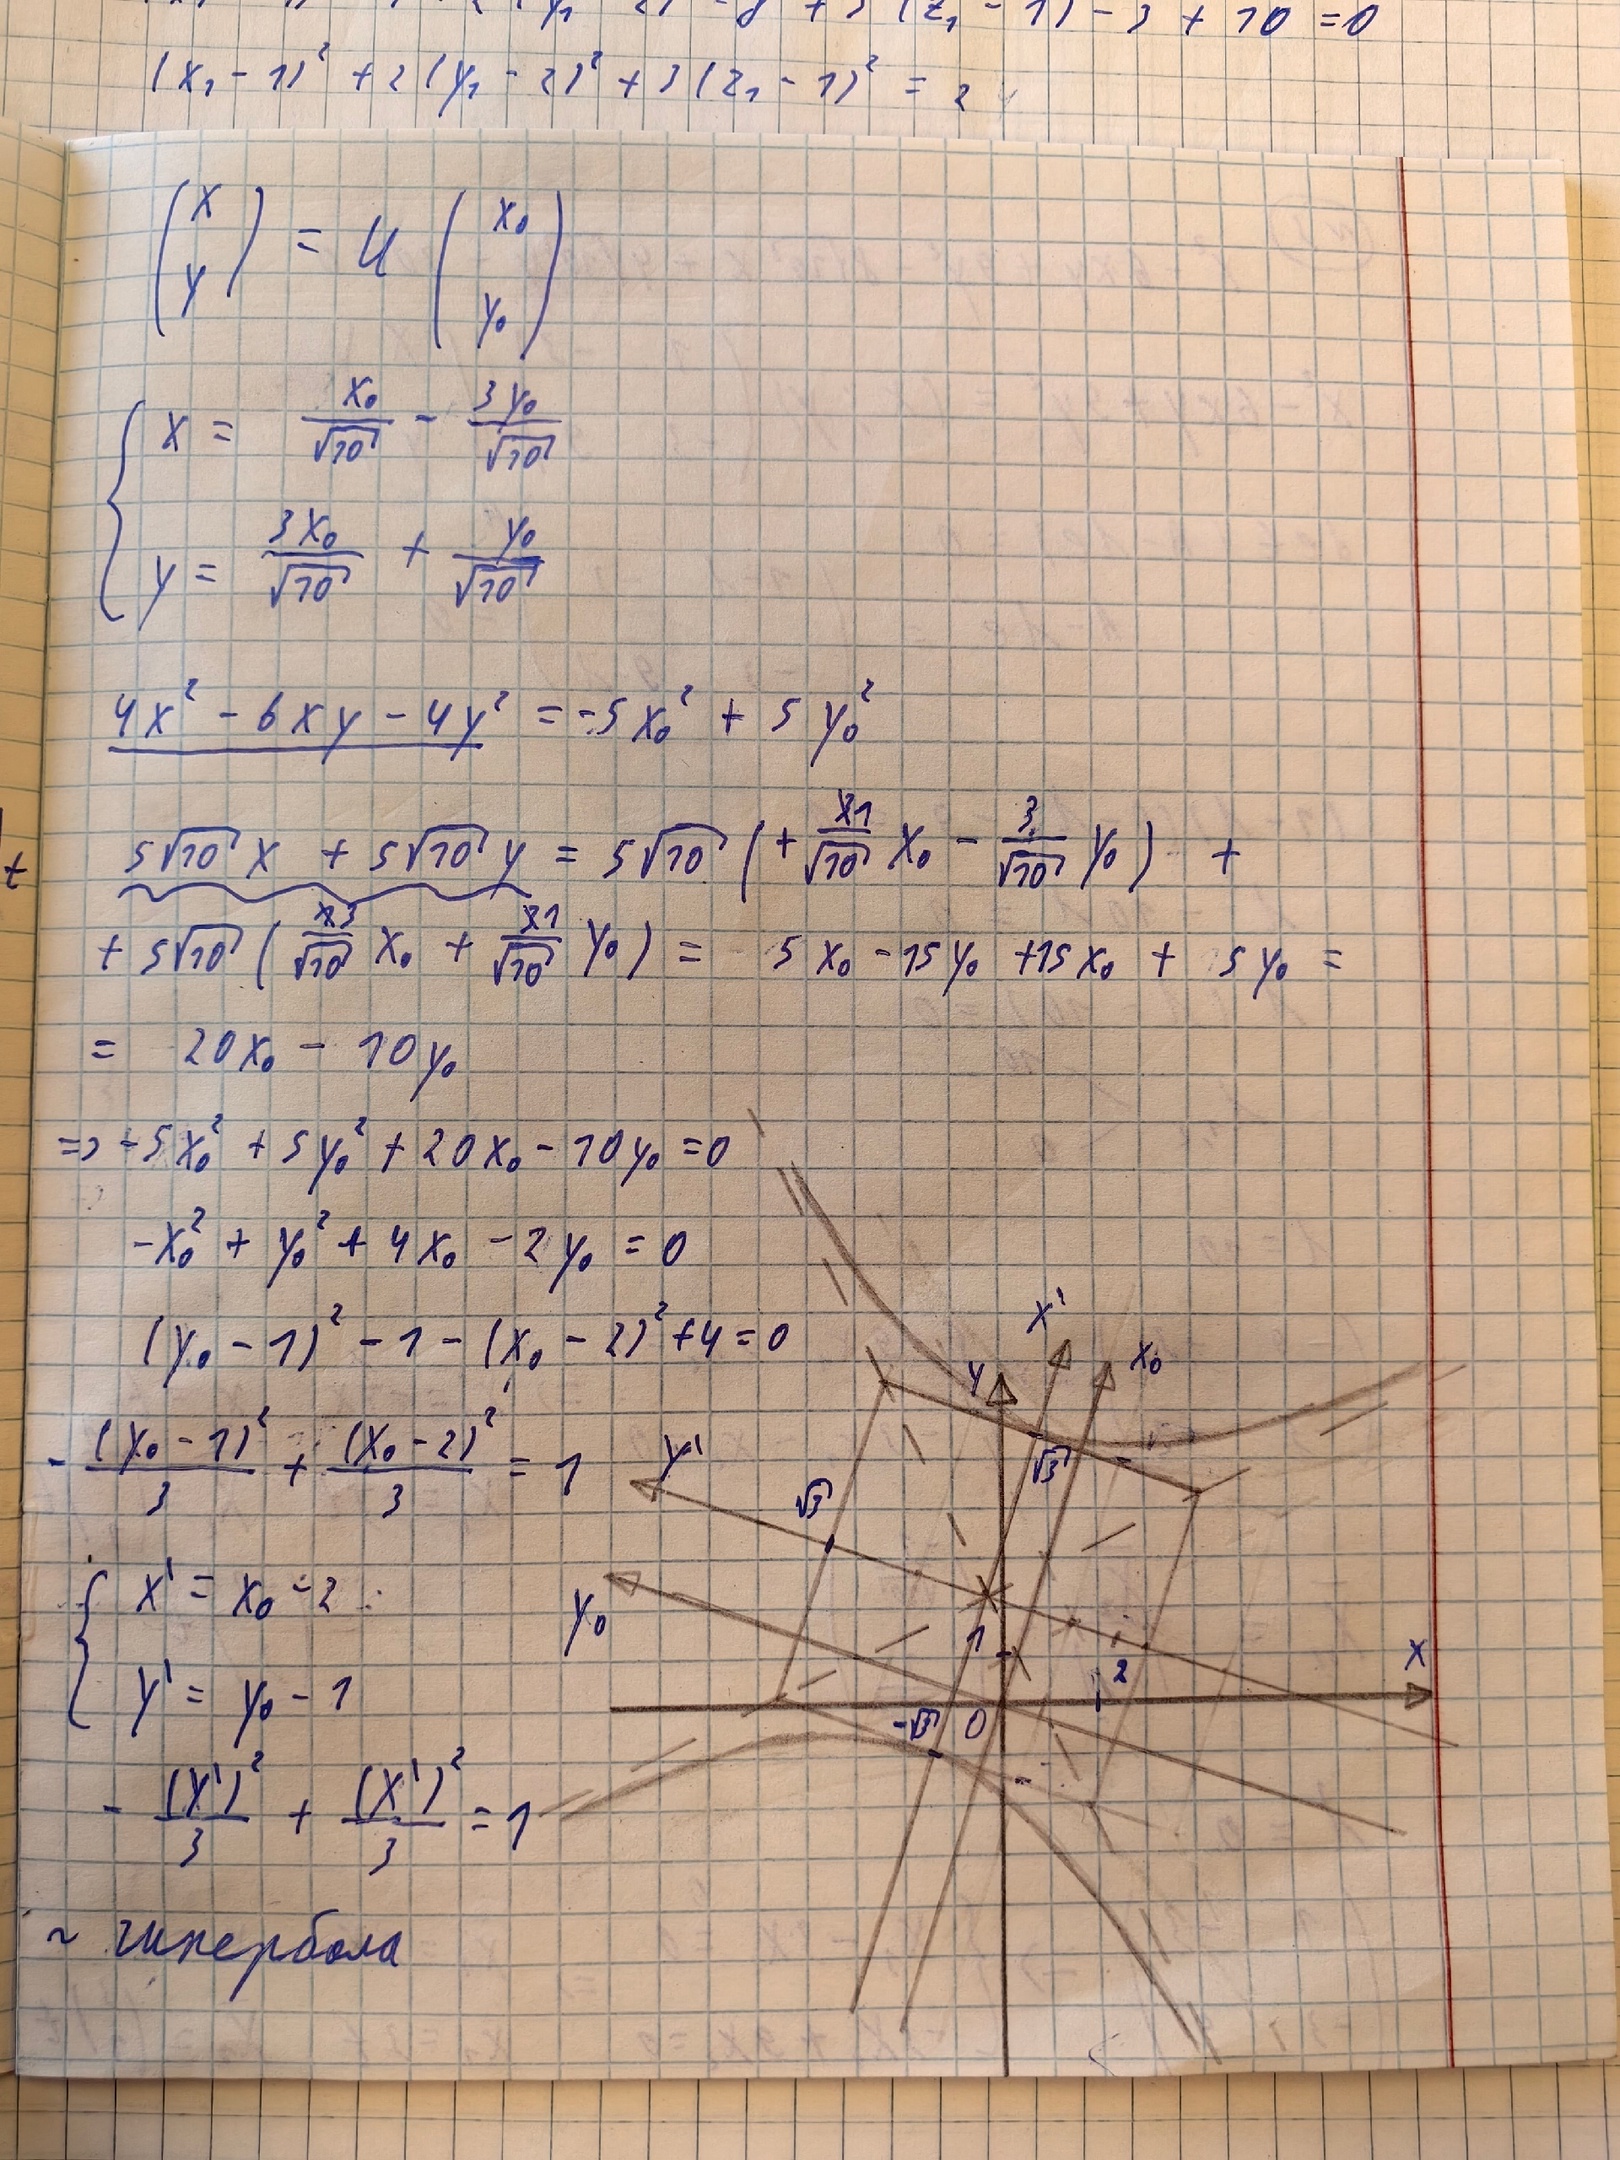 (x₁ - 1)² + 2(y₁ - 2)² + 3(z₁ - 1)² = 2
(x y) = U (x₀ y₀)
{ x = x₀/√10 - 3y₀/√10
y = 3x₀/√10 + y₀/√10
4x² - 6xy - 4y² = -5x₀² + 5y₀²
5√10 x + 5√10 y = 5√10 (+ 1/√10 x₀ - 3/√10 y₀) +
+ 5√10 (3/√10 x₀ + 1/√10 y₀) = 5x₀ - 15y₀ + 15x₀ + 5y₀ =
= 20x₀ - 10y₀
=> -5x₀² + 5y₀² + 20x₀ - 10y₀ = 0
-x₀² + y₀² + 4x₀ - 2y₀ = 0
(y₀ - 1)² - 1 - (x₀ - 2)² + 4 = 0
- (y₀ - 1)²/3 + (x₀ - 2)²/3 = 1
{ x' = x₀ - 2
y' = y₀ - 1
- (y')²/3 + (x')²/3 = 1
~ гипербола
x'
x₀
y
y'
√3
√3
y₀
1
2
x
-√3
0